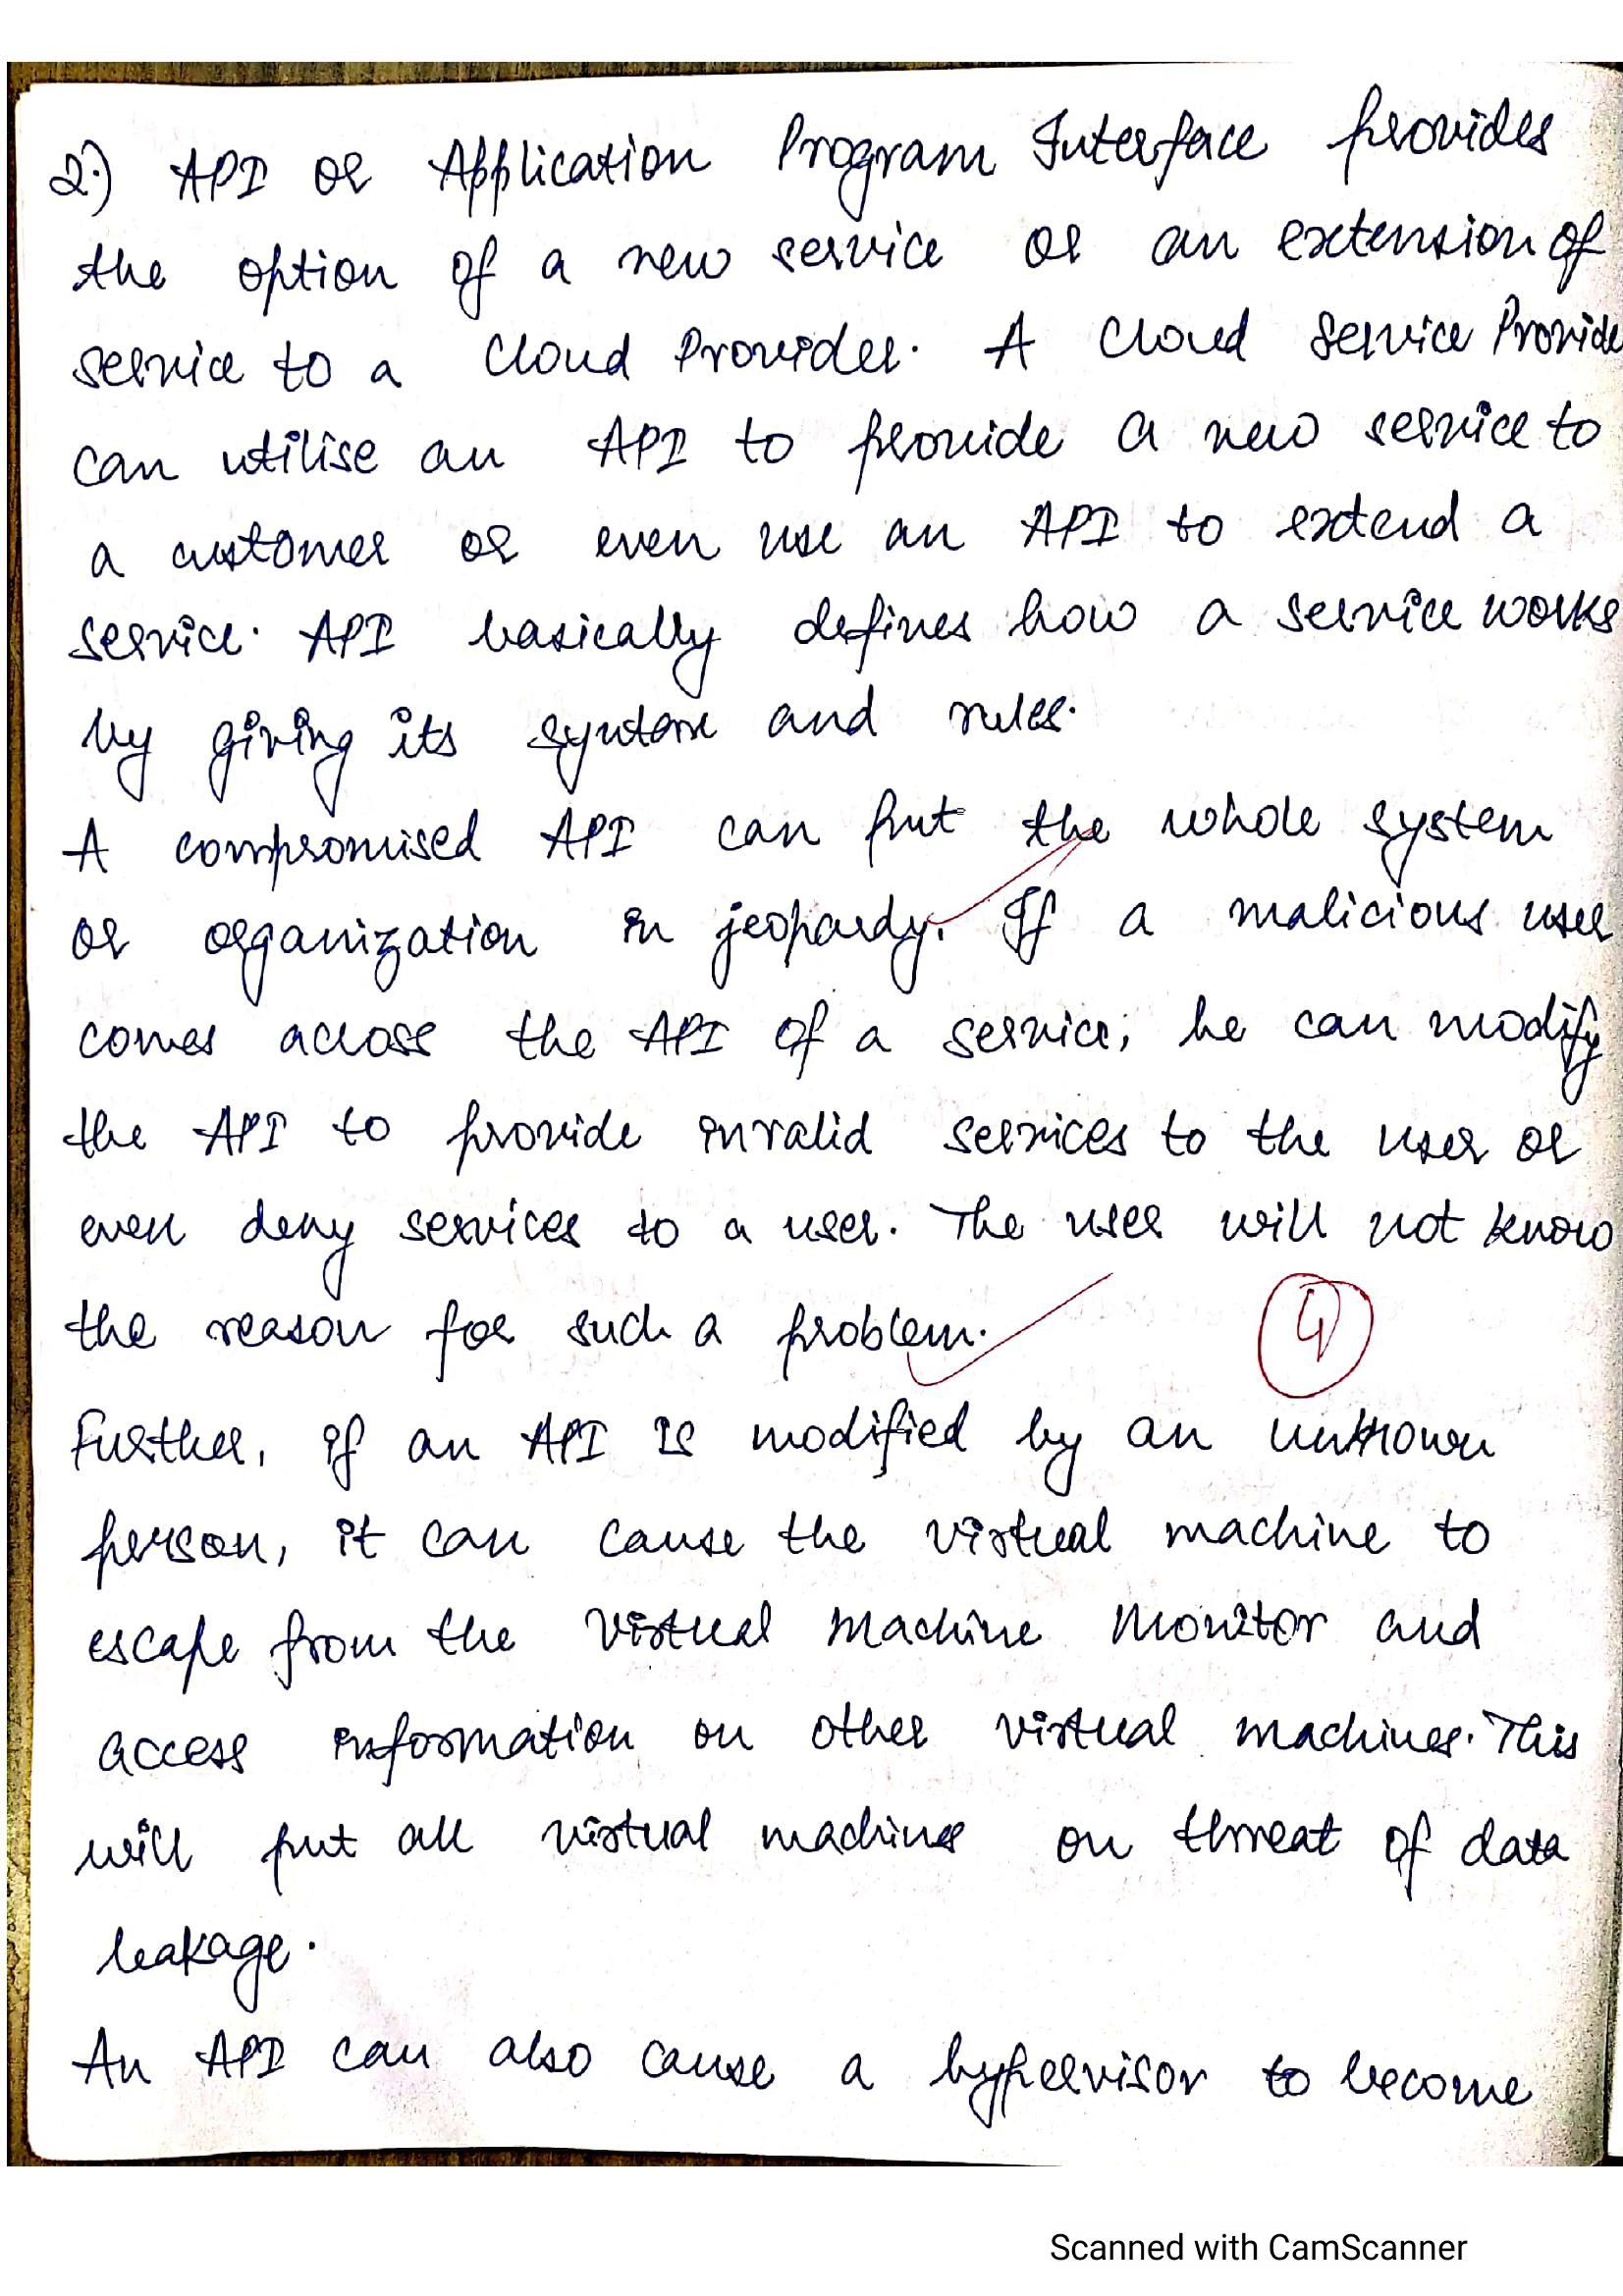 2.) API or Application Program Interface provides
the option of a new service or an extension of
service to a Cloud Provider. A Cloud Service Provide
can utilise an API to provide a new service to
a customer or even use an API to extend a
service. API basically defines how a service works
by giving its syntax and rules.
A compromised API can put the whole system
or organization in jeopardy. If a malicious user
comes across the API of a service, he can modify
the API to provide invalid services to the user or
even deny services to a user. The user will not know
the reason for such a problem.
4
Further, if an API is modified by an unknown
person, it can cause the virtual machine to
escape from the Virtual Machine Monitor and
access information on other virtual machines. This
will put all virtual machines on threat of data
leakage.
An API can also cause a hypervisor to become
Scanned with CamScanner